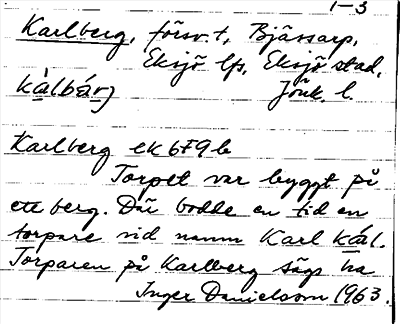 1-3
Karlberg, försv.t, Bjässarp,
Eksjö lfs, Eksjö stad,
kàlbárj Jönk. l.
Karlberg ek 679 b
Torpet var byggt på
ett berg. Där bodde en tid en
torpare vid namn Karl kál.
Torparen på Karlberg sägs ha
Inger Danielsson 1963.